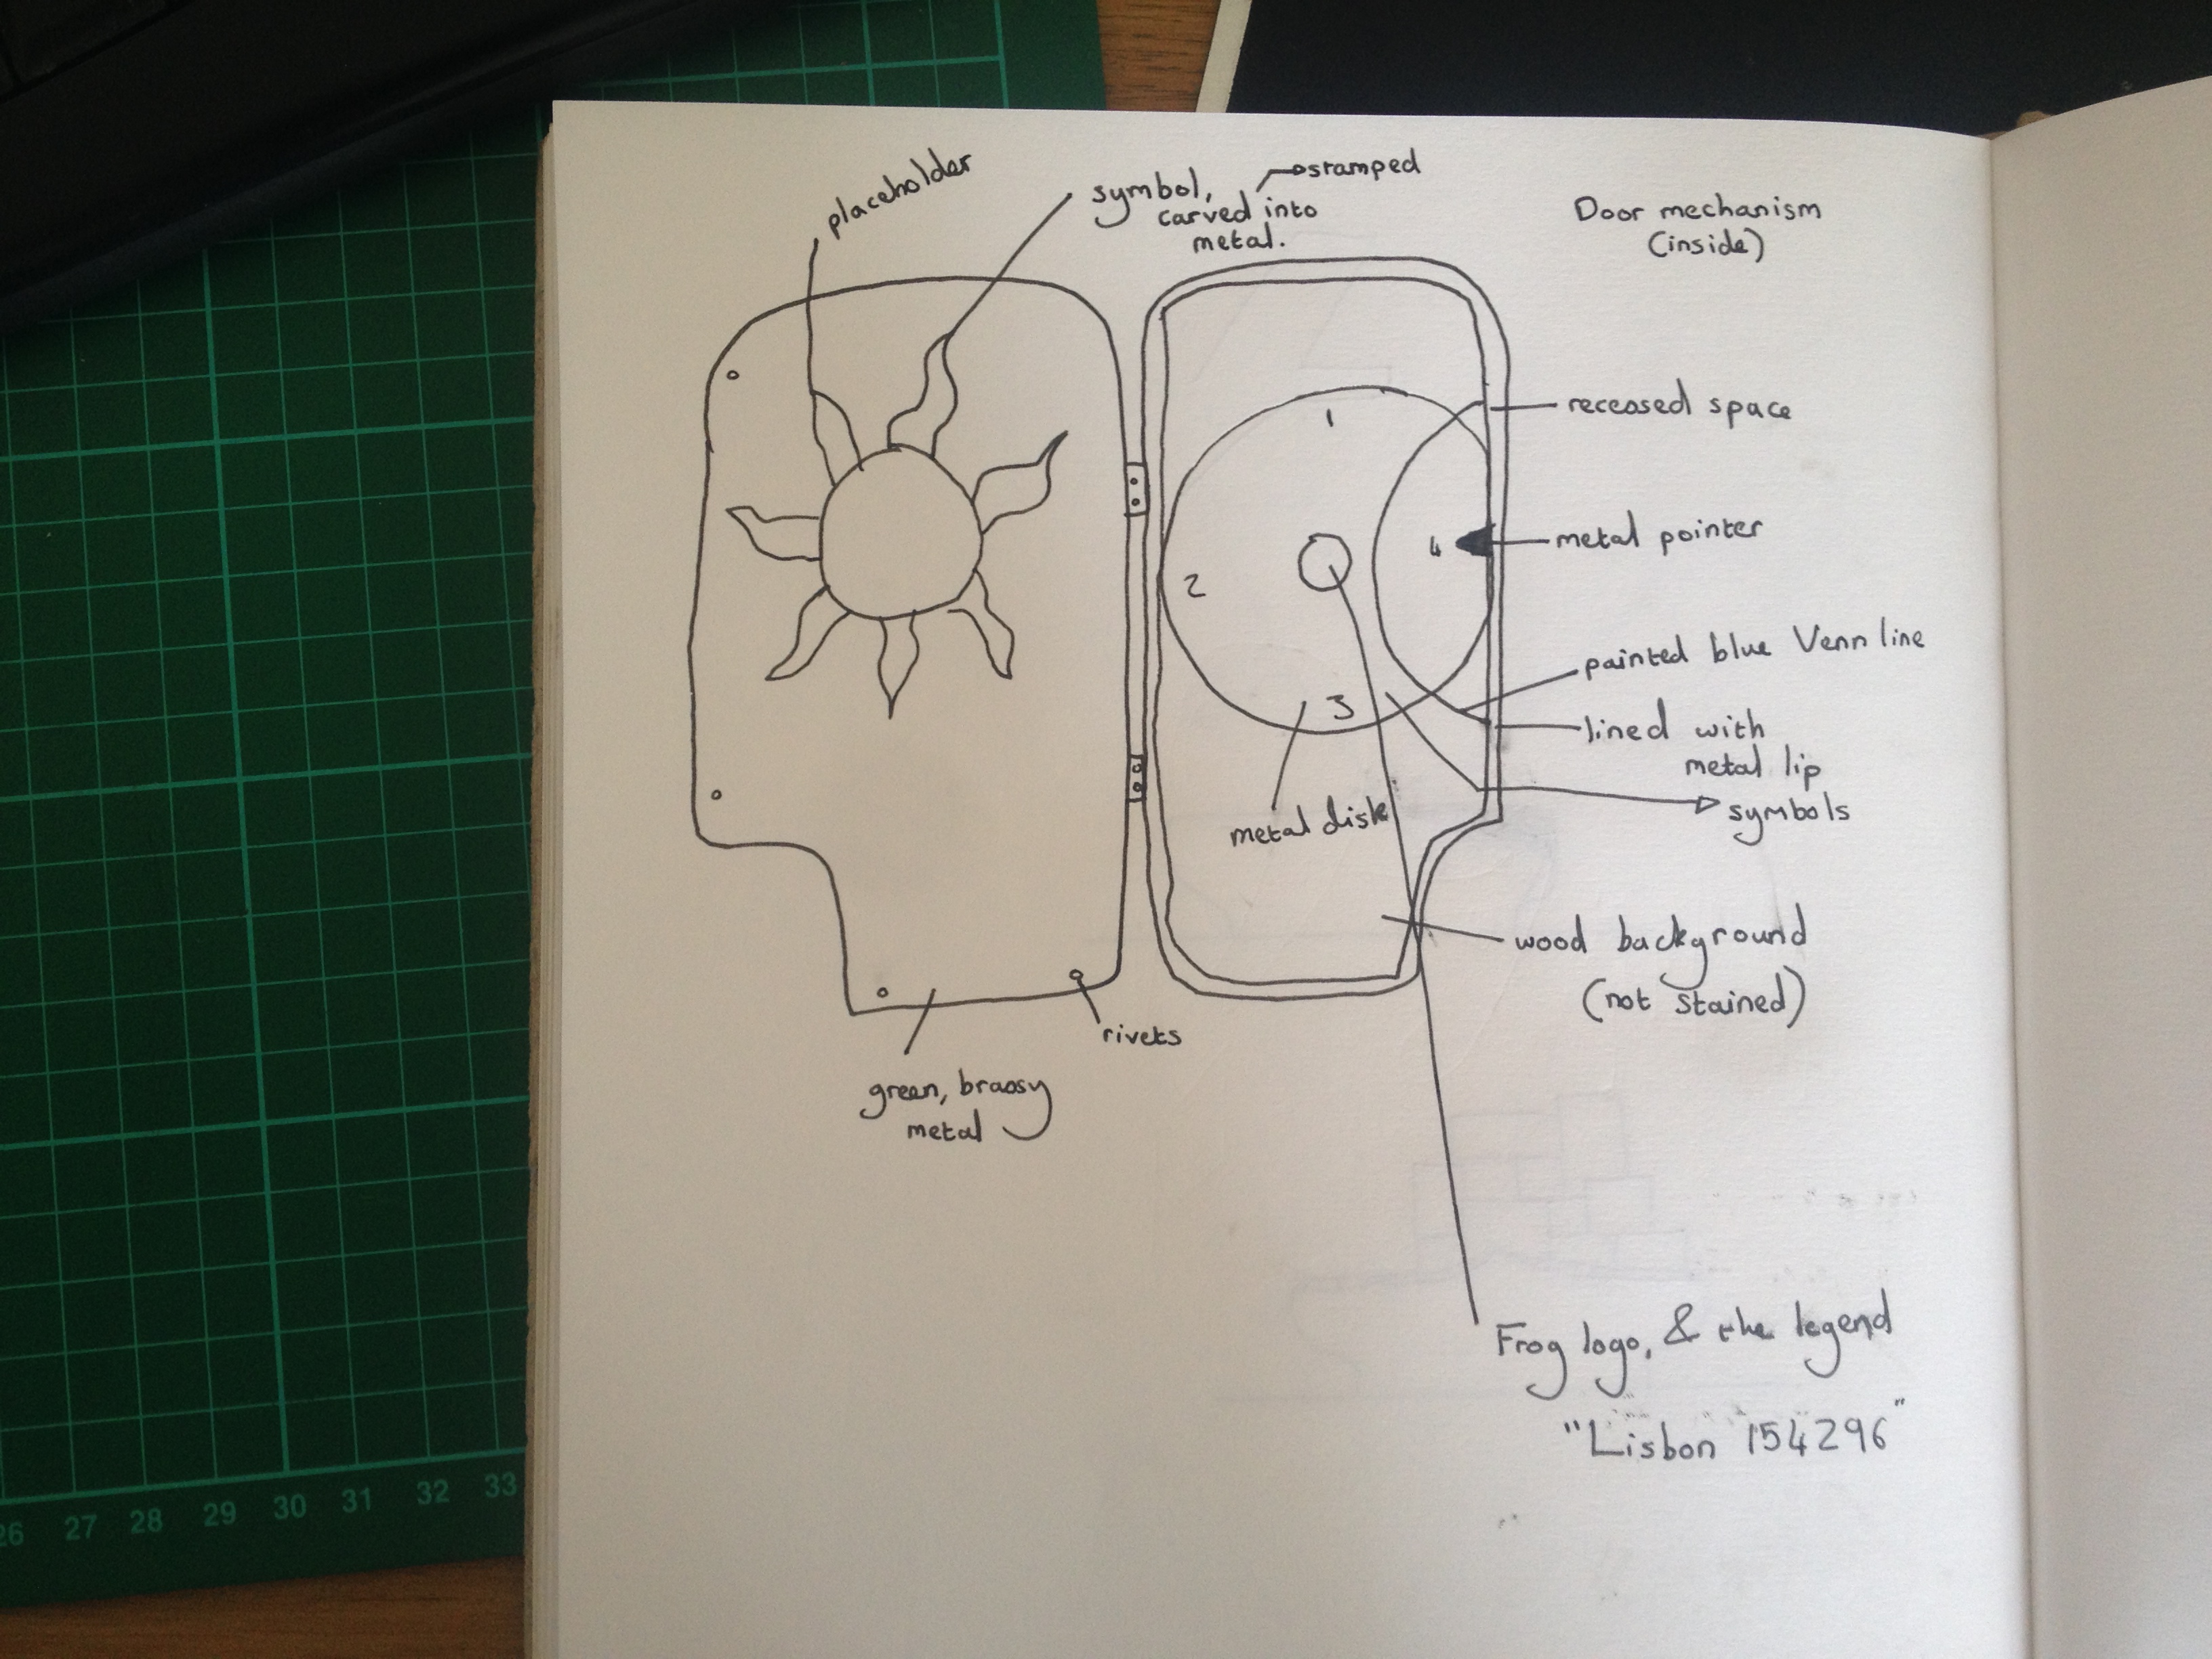 placeholder
symbol,
stamped
carved into
metal.
Door mechanism
(inside)
1
recessed space
4
metal pointer
2
painted blue Venn line
3
lined with
metal lip
symbols
metal disk
wood background
(not stained)
rivets
green, brassy
metal
Frog logo, & the legend
"Lisbon 154296"
26 27 28 29 30 31 32 33